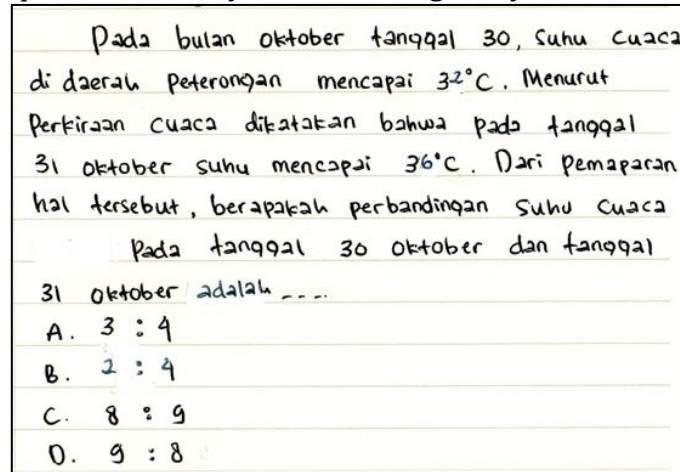 Pada bulan oktober tanggal 30, suhu cuaca
di daerah Peterongan mencapai 32°C. Menurut
Perkiraan cuaca dikatakan bahwa pada tanggal
31 oktober suhu mencapai 36°C. Dari Pemaparan
hal tersebut, berapakah perbandingan suhu cuaca
Pada tanggal 30 oktober dan tanggal
31 oktober adalah ....
A. 3 : 4
B. 2 : 4
C. 8 : 9
D. 9 : 8